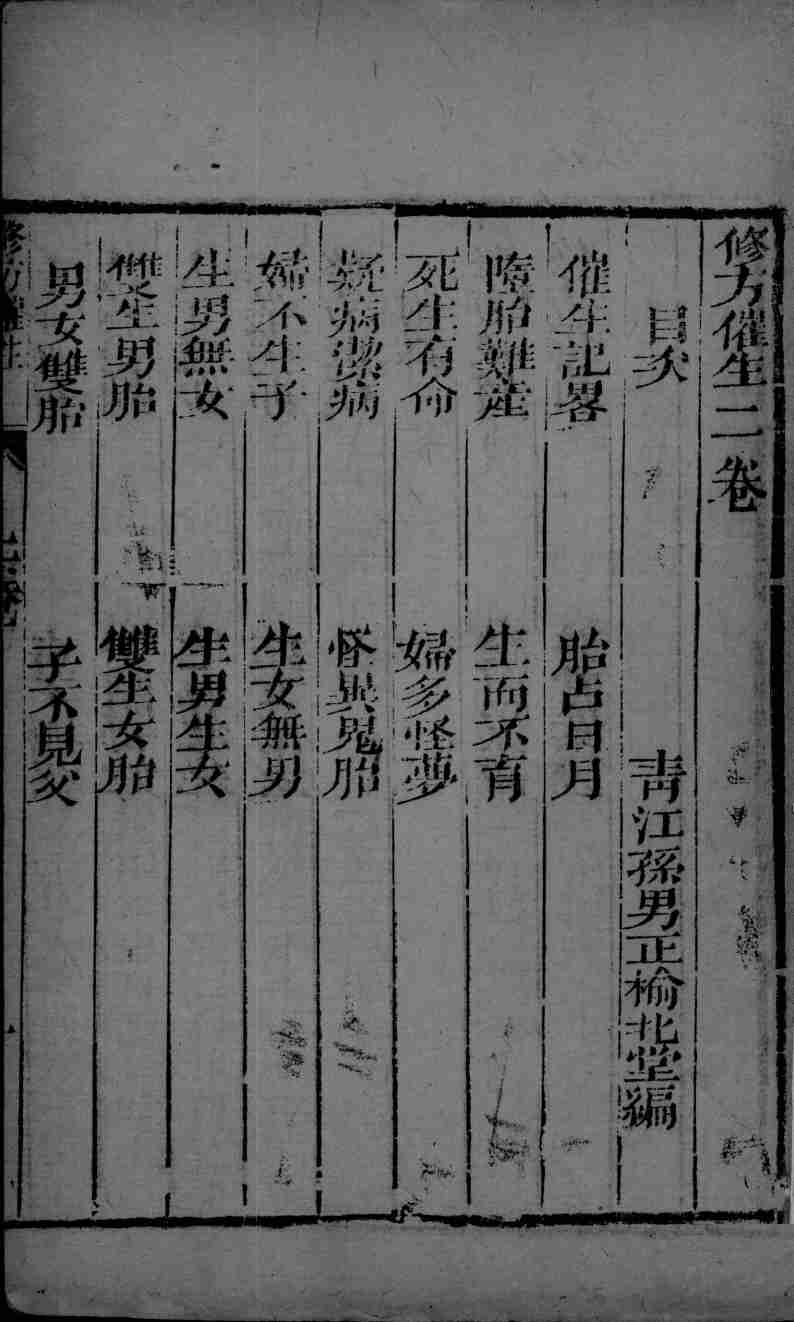 修方催生二卷
目次
青江孫男正榆北堂編
催生記畧
胎占日月
墮胎難產
生而不育
死生有命
婦多怪夢
疑病潔病
怪異鬼胎
婦不生子
生女無男
生男無女
生男生女
雙生男胎
雙生女胎
男女雙胎
子不見父